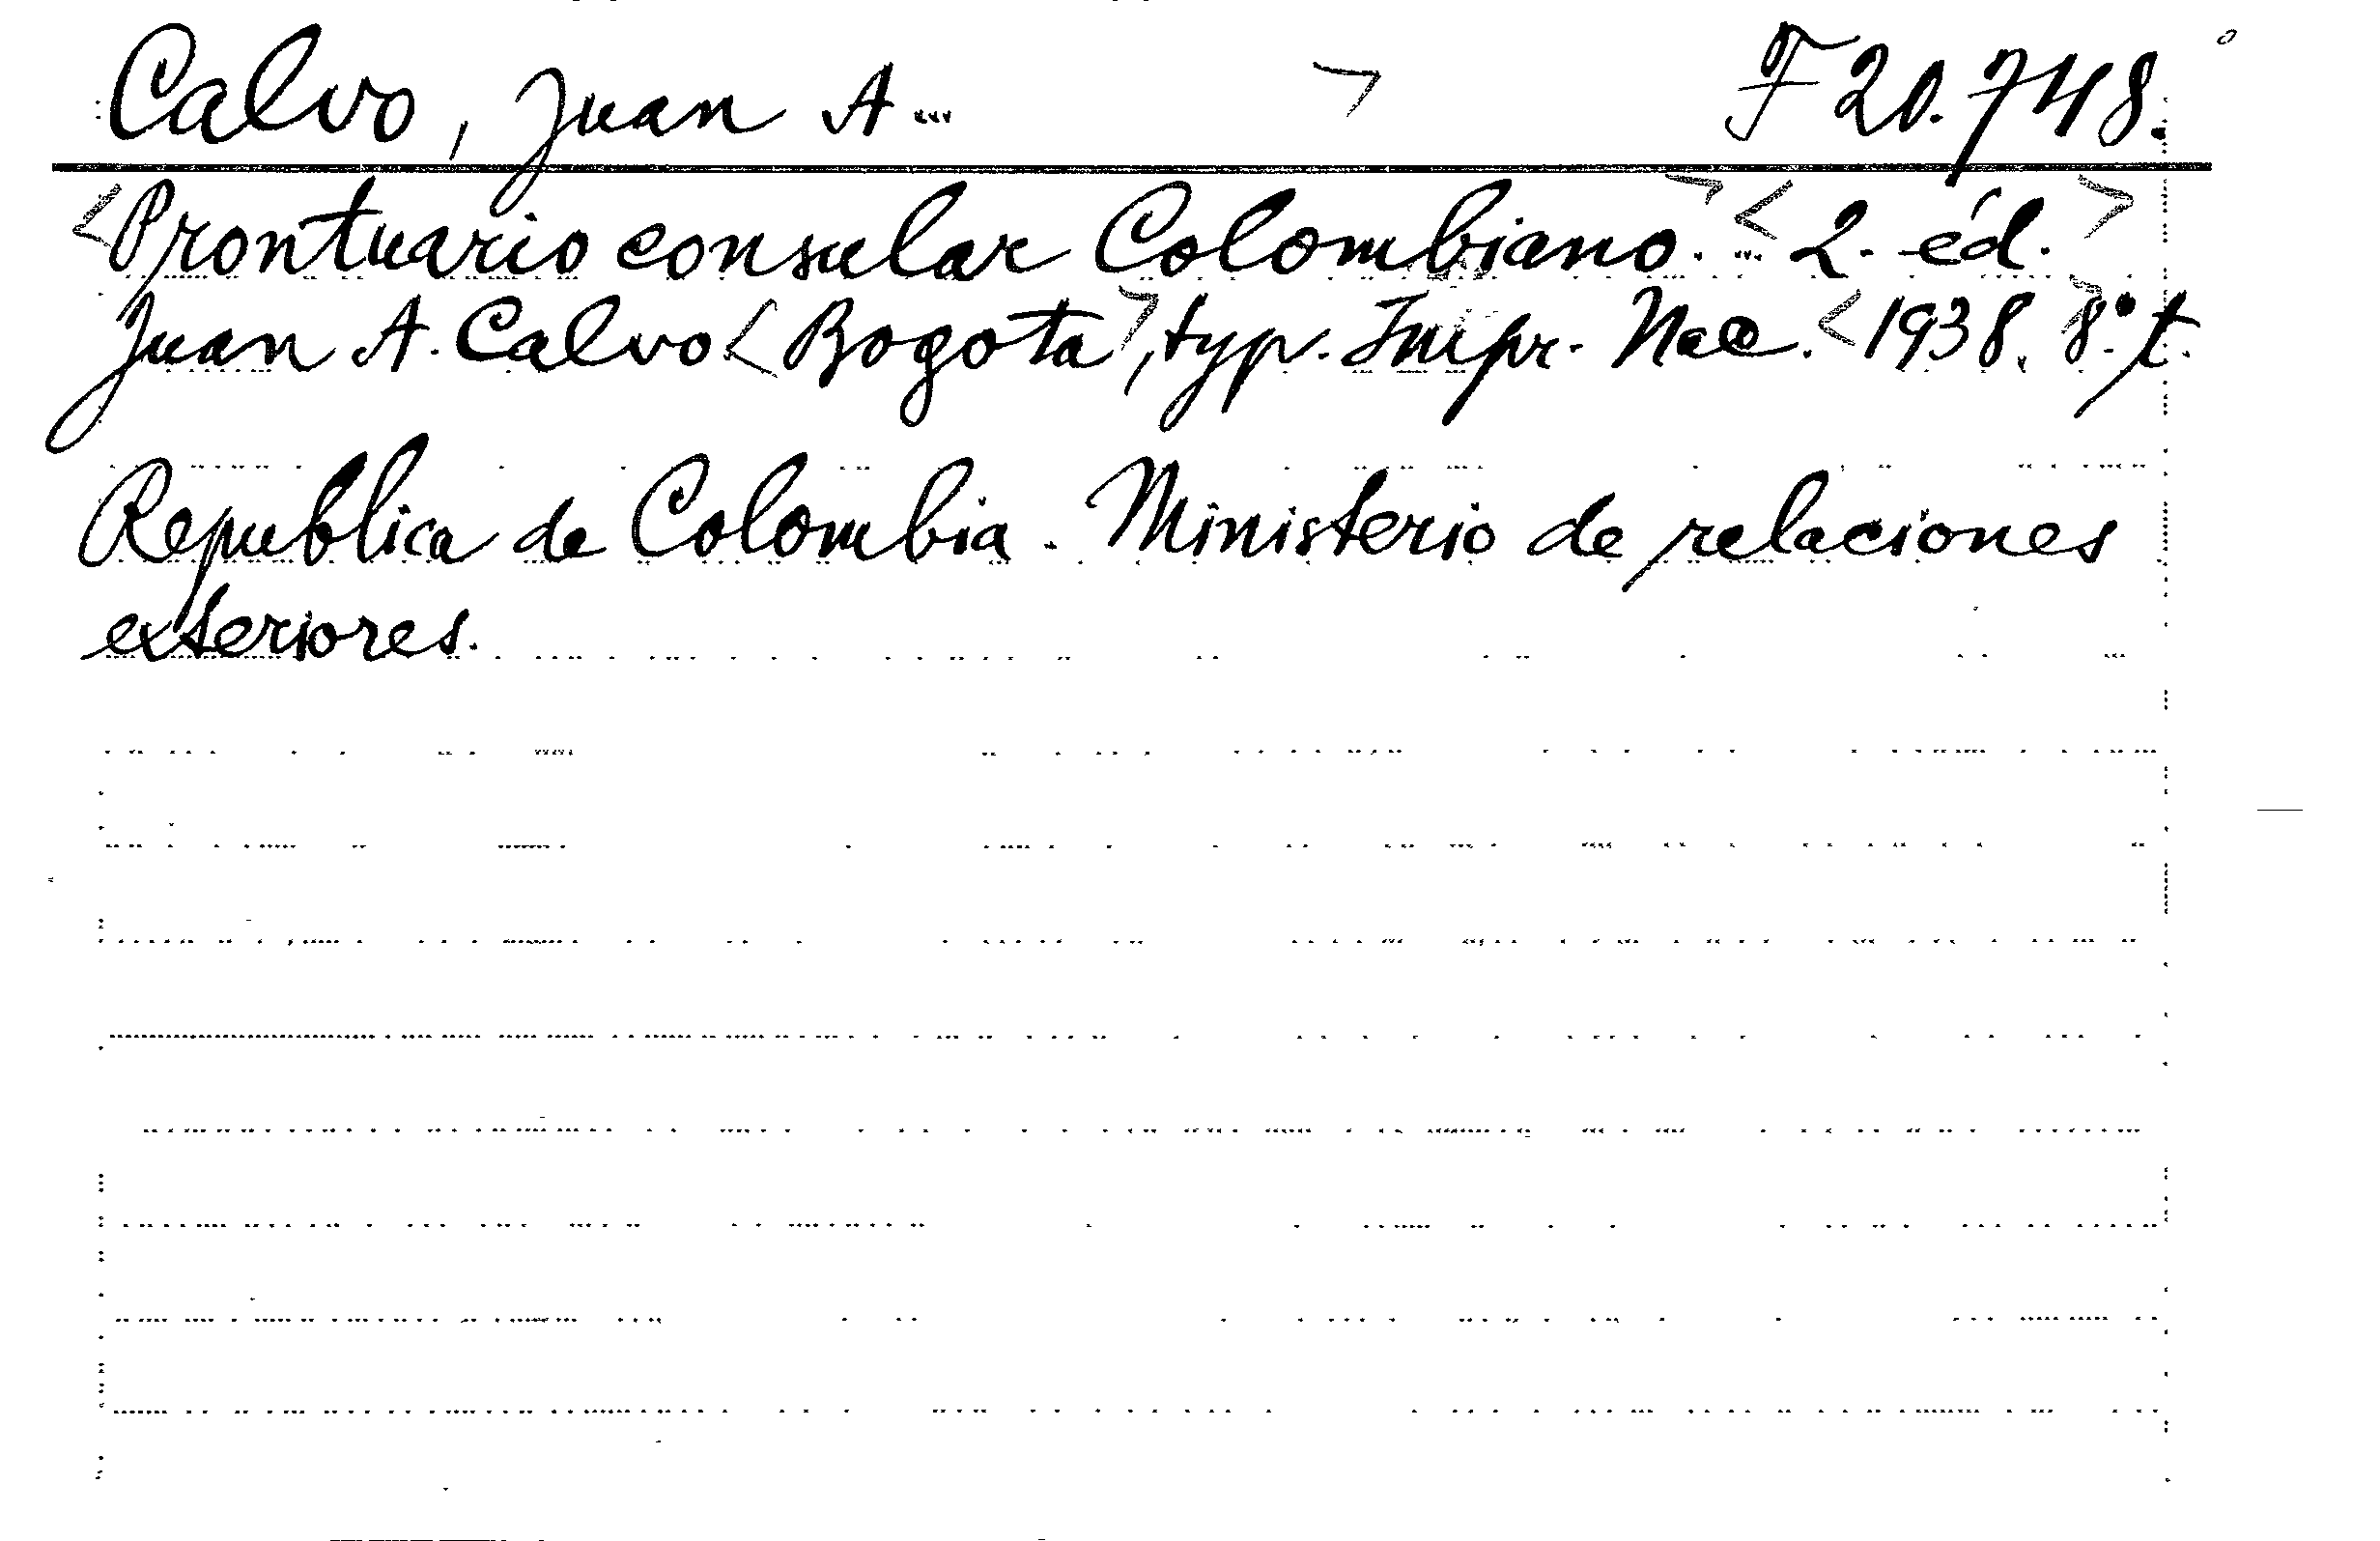 Calvo, Juan A... > F 20.748.
<Prontuario consular Colombiano.> <... 2. éd.>
Juan A. Calvo <Bogota>, typ. Impr. Nac. <1938. 8:> t.
Republica de Colombia. Ministerio de relaciones
exteriores.